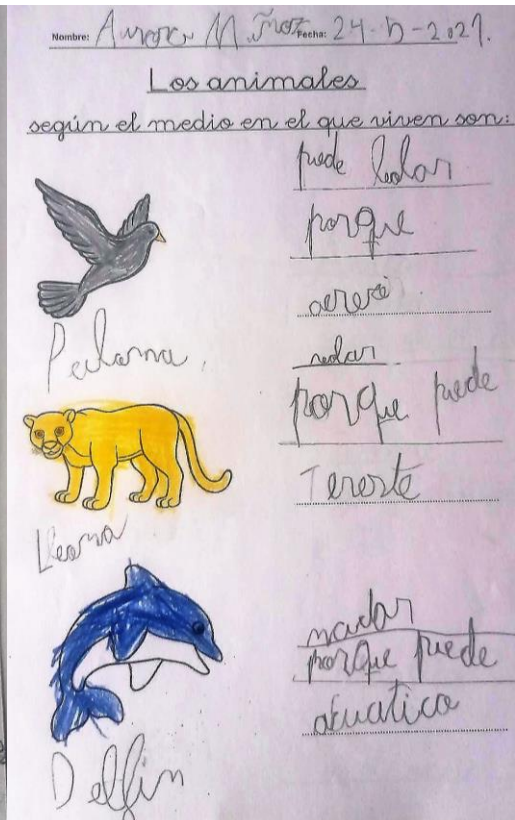 Nombre: Auror M. Ñoz Fecha: 24-5-2021.
Los animales
según el medio en el que viven son:
puede bolar
porque
aereo
Paloma.
andar
porque puede
Tereste
Lleona
nadar
porque puede
acuatico
Delfin